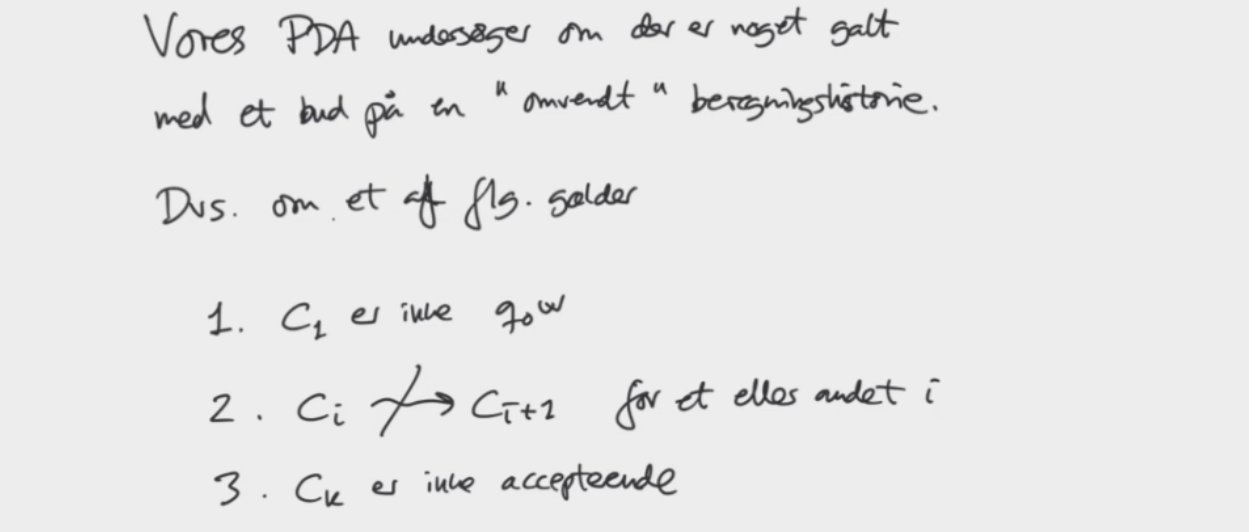 Vores PDA undersøger om der er noget galt
med et bud på en "omvendt" beregningshistorie.
Dvs. om et af flg. gælder
1. C₁ er ikke q₀w
2. Cᵢ ↛ Cᵢ₊₁ for et elles andet i
3. Cₖ er ikke accepteende